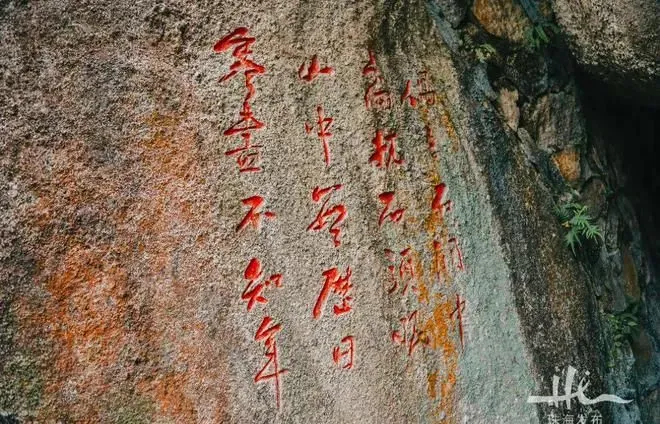 偶石洞中
高枕石頭眠
山中無歷日
寒盡不知年
珠海发布